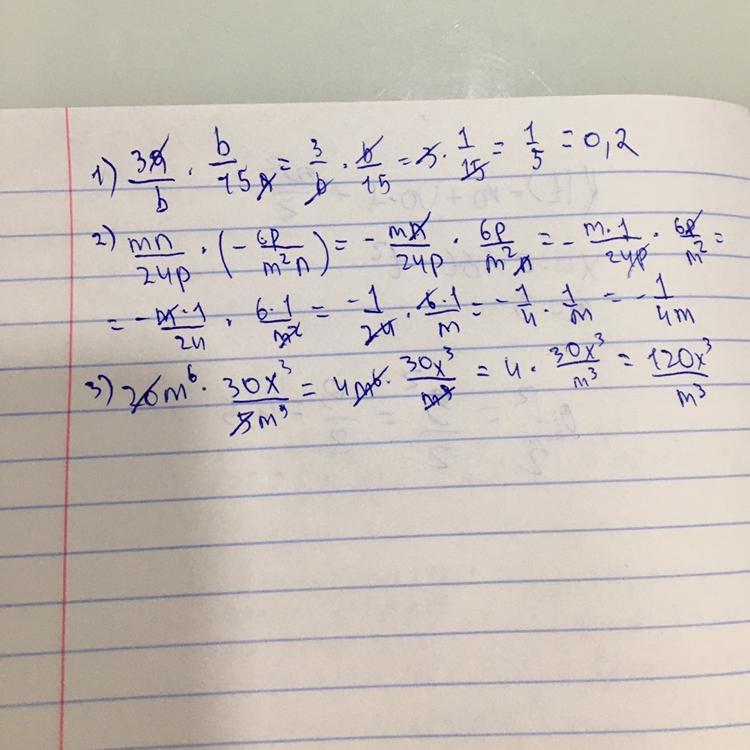 1) 3a/b · b/15a = 3/b · b/15 = 3 · 1/15 = 1/5 = 0,2
2) mn/24p · (- 6p/m²n) = - mn/24p · 6p/m²n = - m·1/24p · 6p/m² =
= - m·1/24 · 6·1/m² = -1/24 · 6·1/m = - 1/4 · 1/m = - 1/4m
3) 20m⁶ · 30x³/5m⁹ = 4m⁶ · 30x³/m⁹ = 4 · 30x³/m³ = 120x³/m³